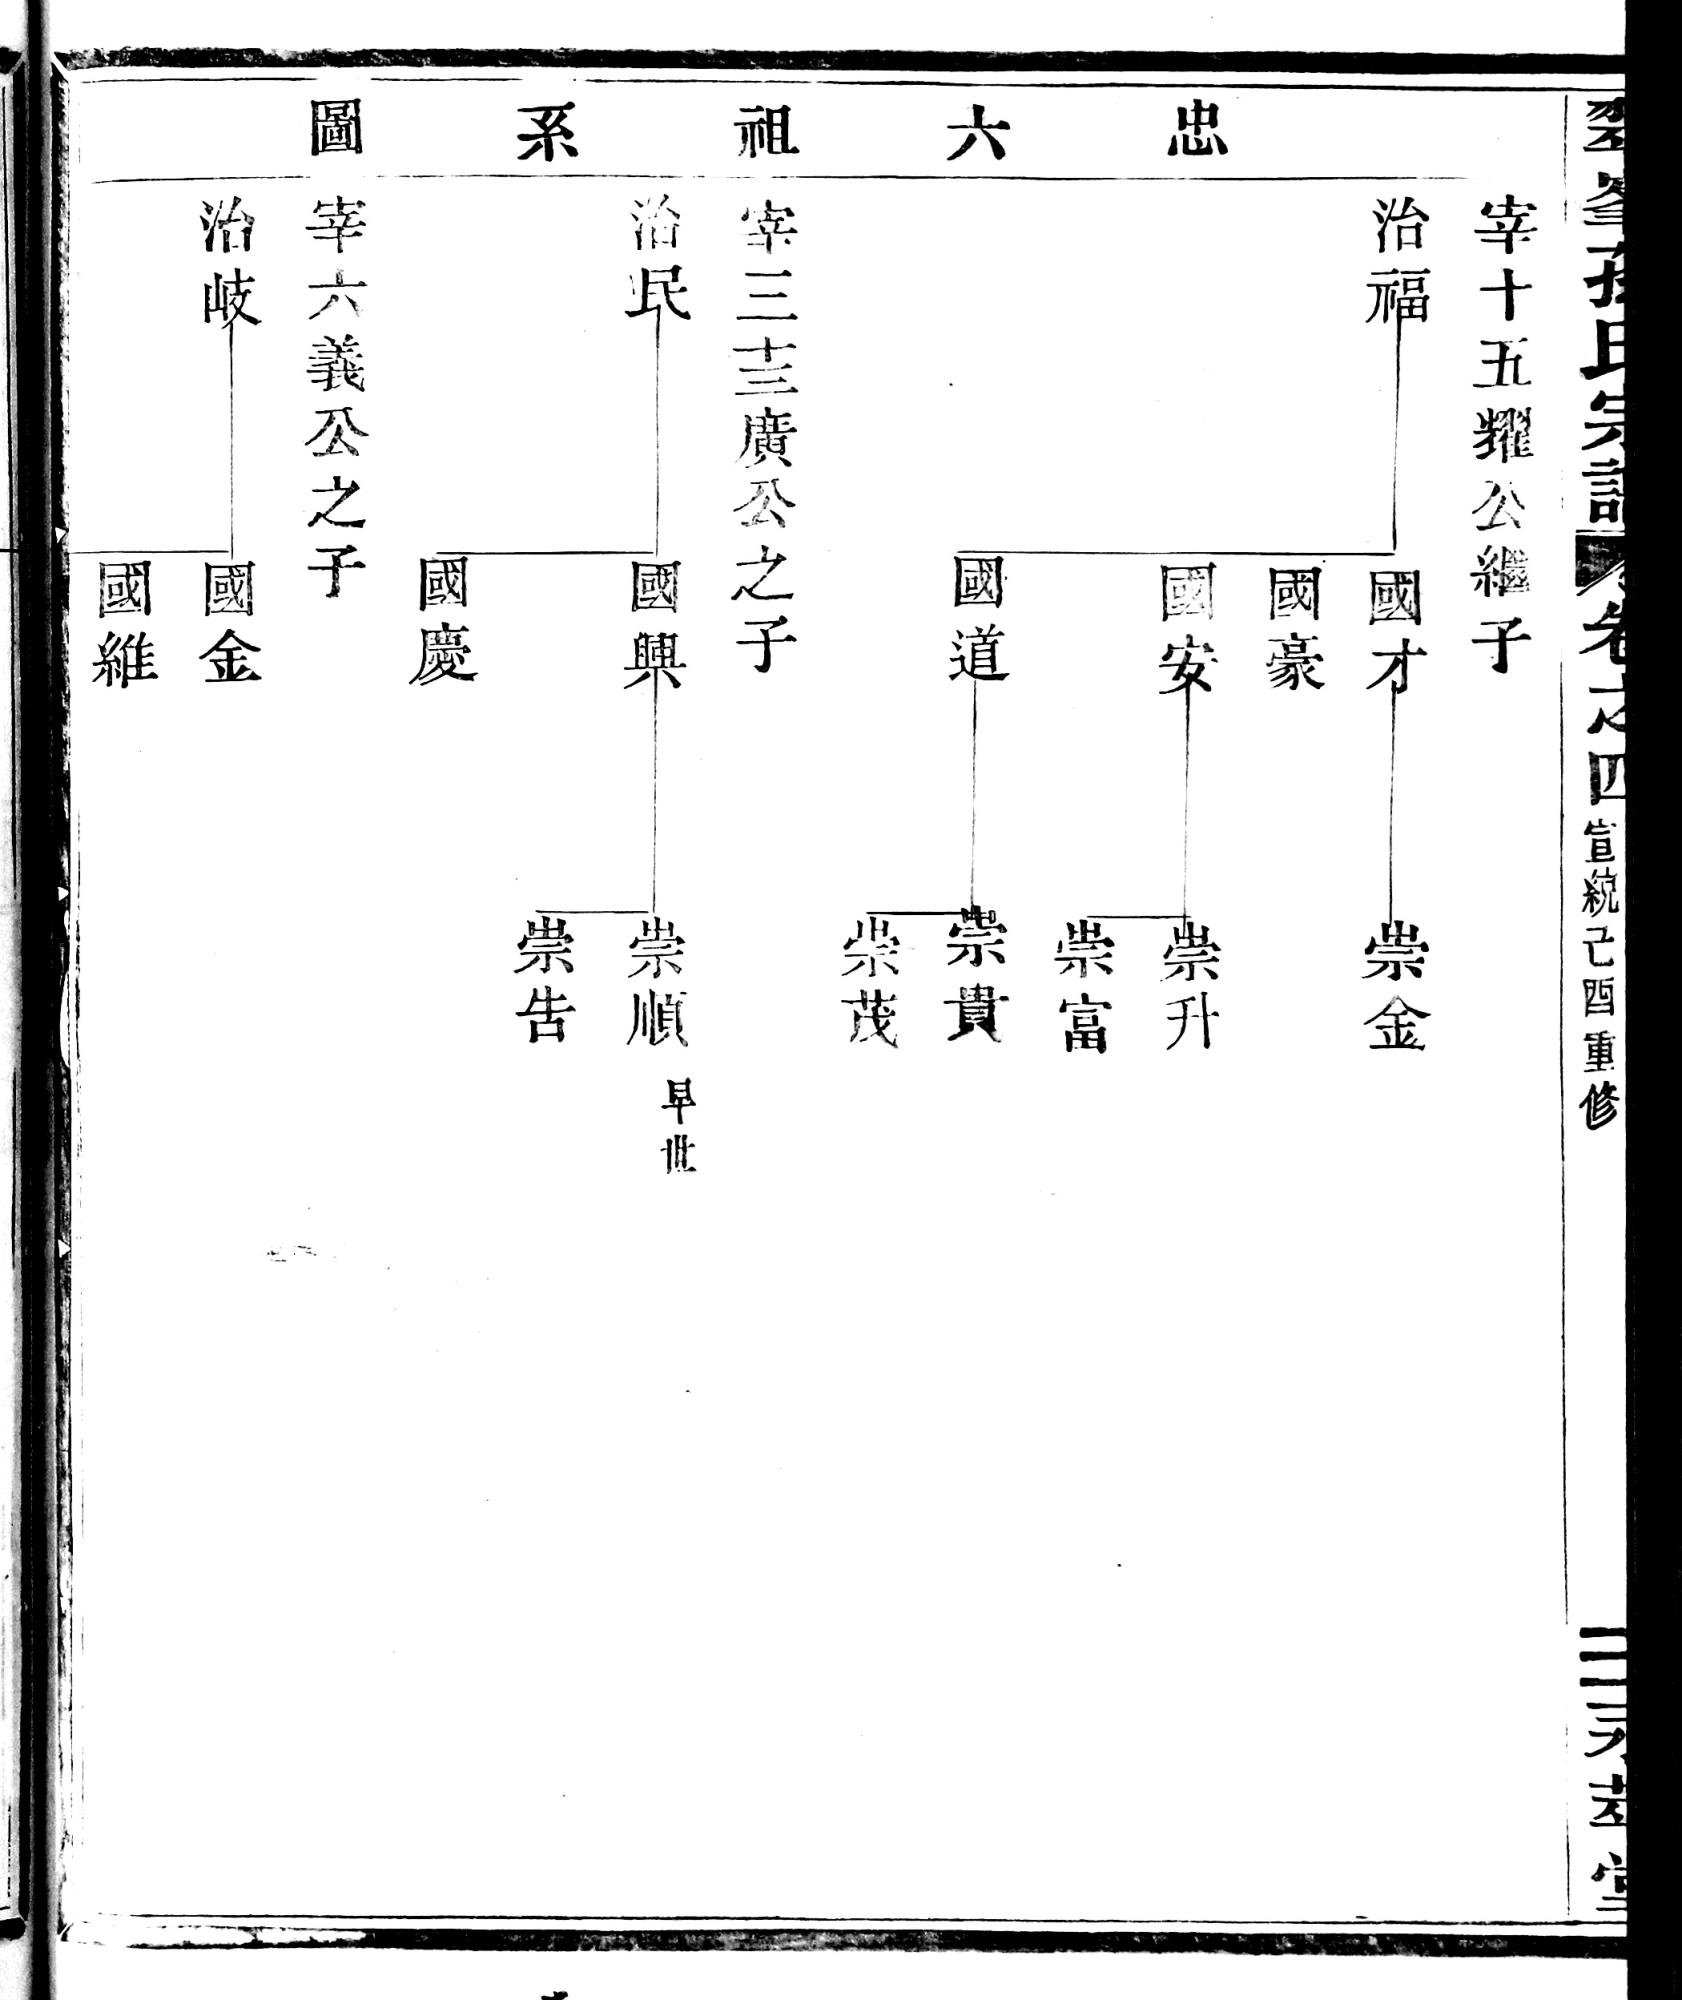 忠六祖系圖
宰十五耀公繼子
治福
國才
崇金
國豪
國安
崇升
崇富
國道
崇貴
崇茂
宰三十三廣公之子
治民
國興
崇順
早世
崇告
國慶
宰六義公之子
治岐
國金
國維
孫氏宗譜
卷之四
宣統己酉重修